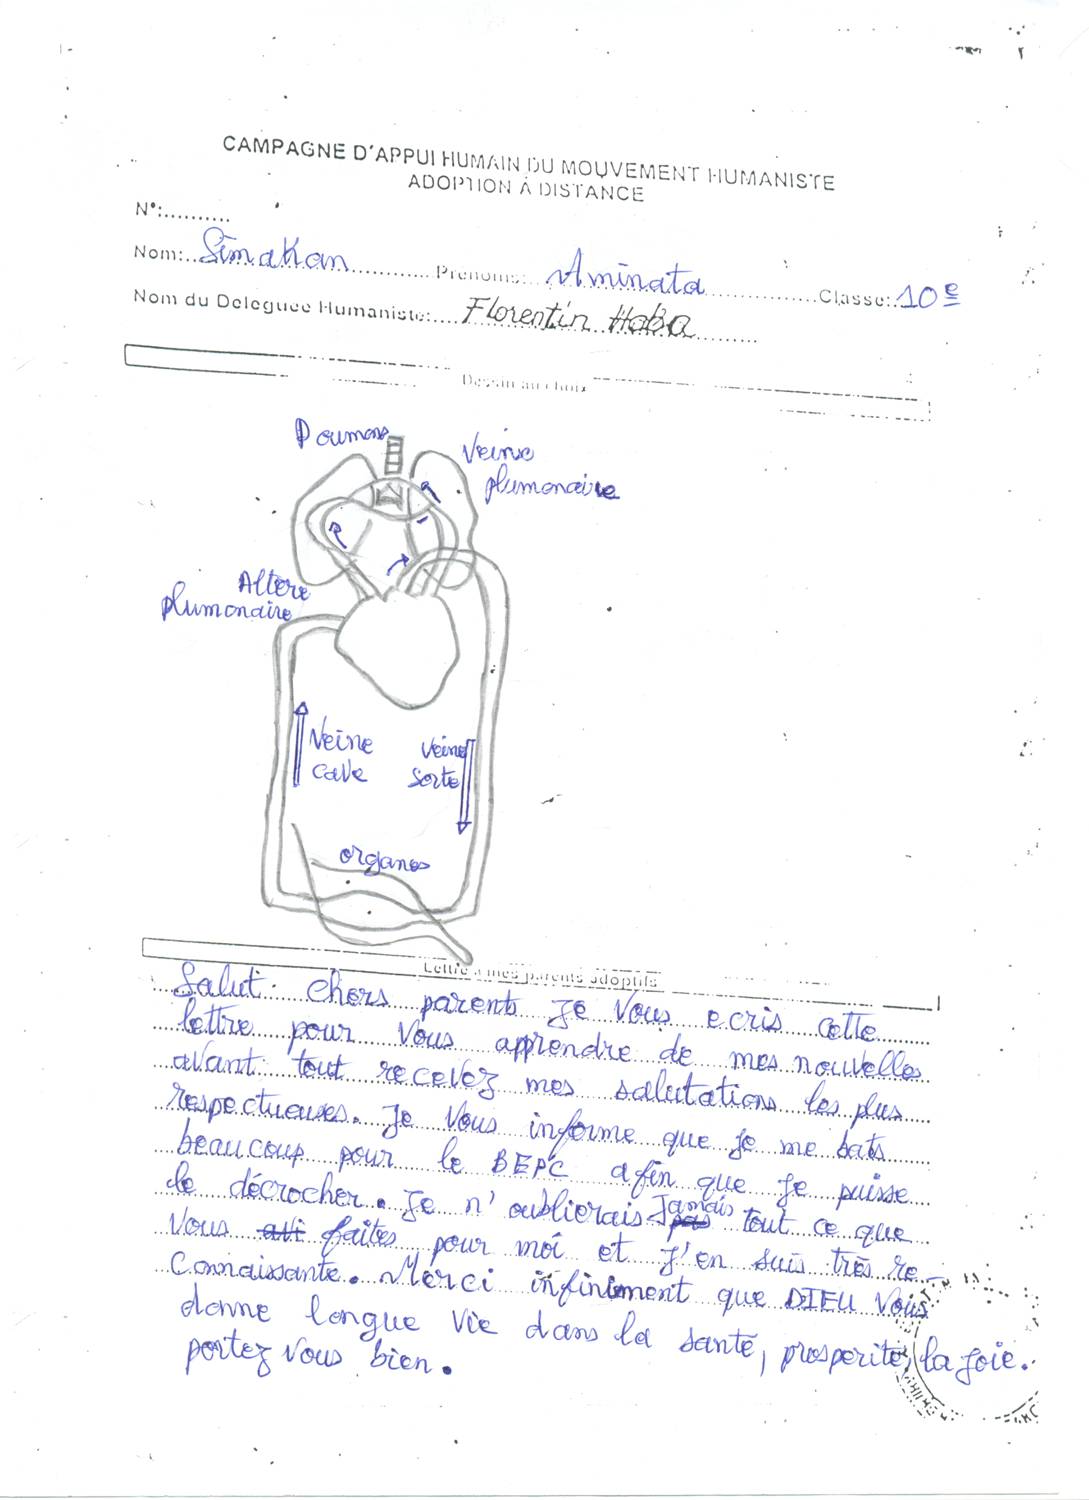 CAMPAGNE D'APPUI HUMAIN DU MOUVEMENT HUMANISTE
ADOPTION À DISTANCE
N°:..........
Nom: Simakan Prénoms: Aminata Classe: 10e
Nom du Deleguee Humaniste: Florentin Haba
Dessin au choix
Poumons
Veine
plumonaire
Altere
plumonaire
Veine
cave
Veine
sorte
organes
Lettre à mes parents adoptifs
Salut chers parents Je vous ecris cette
lettre pour vous apprendre de mes nouvelles
avant tout recevez mes salutations les plus
respectueuses. Je vous informe que Je me bats
beaucoup pour le BEPC afin que Je puisse
le décrocher. Je n'oublierais Jamais tout ce que
vous faites pour moi et J'en suis très re-
connaissante. Merci infiniment que DIEU vous
donne longue vie dans la santé, prosperité, la joie.
portez vous bien.